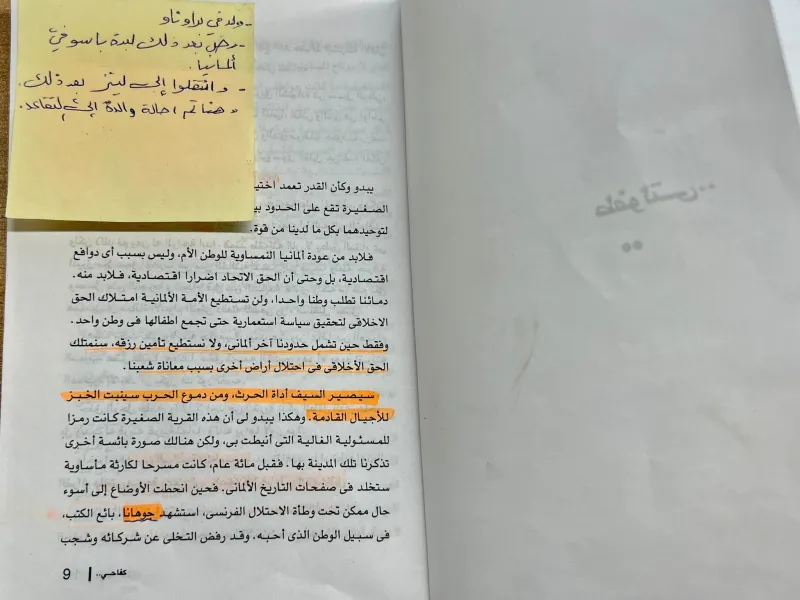 - ولد في براوناو
- رحل بعد ذلك لبدة باسو في
ألمانيا.
- وانتقلوا إلى لينز بعد ذلك.
وهنا تم احالة والدة إلى التقاعد.
يبدو وكأن القدر تعمد اختيا
الصغيرة تقع على الحدود بي
لتوحيدهما بكل ما لدينا من قوة.
فلابد من عودة ألمانيا النمساوية للوطن الأم، وليس بسبب أى دوافع
اقتصادية، بل وحتى أن الحق الاتحاد اضرارا اقتصادية، فلابد منه.
دمائنا تطلب وطنا واحدا، ولن تستطيع الأمة الألمانية امتلاك الحق
الاخلاقى لتحقيق سياسة استعمارية حتى تجمع اطفالها فى وطن واحد.
وفقط حين تشمل حدودنا آخر ألمانى، ولا نستطيع تأمين رزقه، سنمتلك
الحق الأخلاقى فى احتلال أراض أخرى بسبب معاناة شعبنا.
سيصير السيف أداة الحرث، ومن دموع الحرب سينبت الخبز
للأجيال القادمة. وهكذا يبدو لى أن هذه القرية الصغيرة كانت رمزا
للمسئولية الغالية التى أنيطت بى، ولكن هنالك صورة بائسة أخرى
تذكرنا تلك المدينة بها. فقبل مائة عام، كانت مسرحا لكارثة مأساوية
ستخلد فى صفحات التاريخ الألمانى. فحين انحطت الأوضاع إلى أسوء
حال ممكن تحت وطأة الاحتلال الفرنسى، استشهد جوهانا، بائع الكتب،
فى سبيل الوطن الذى أحبه. وقد رفض التخلى عن شركائه وشجب
كفاحـي.. 9
طفولتى..